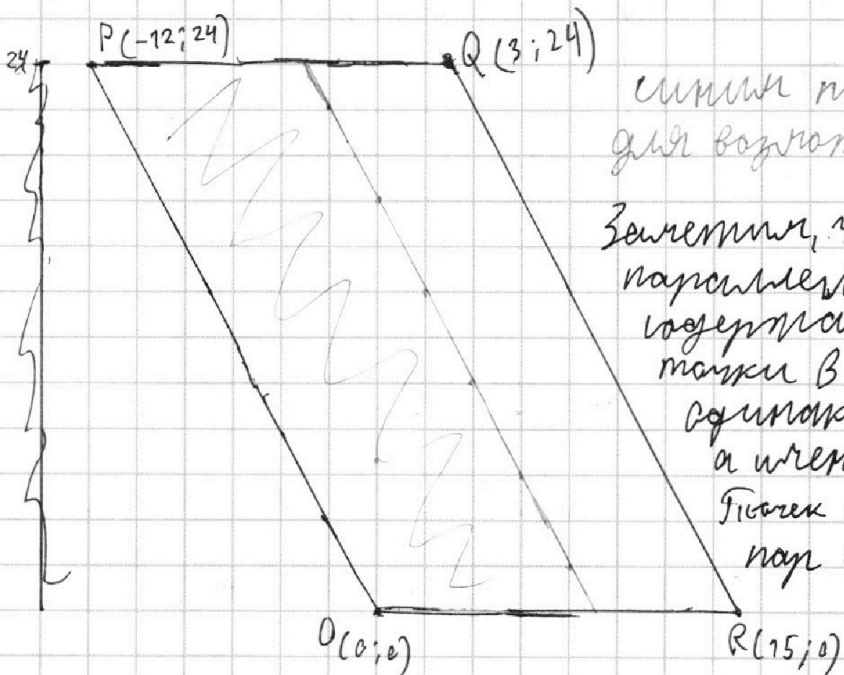 24
P(-12;24)
Q(3;24)
синим
для
Заметим,
параллел
содержа
точки В
одинак
а имен
Точек
пар
O(0;0)
R(15;0)